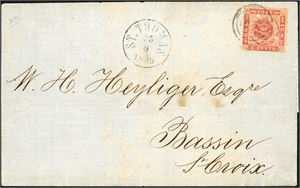 ST. THOMAS
W. H. Heyliger Esqre
Bassin
St Croix